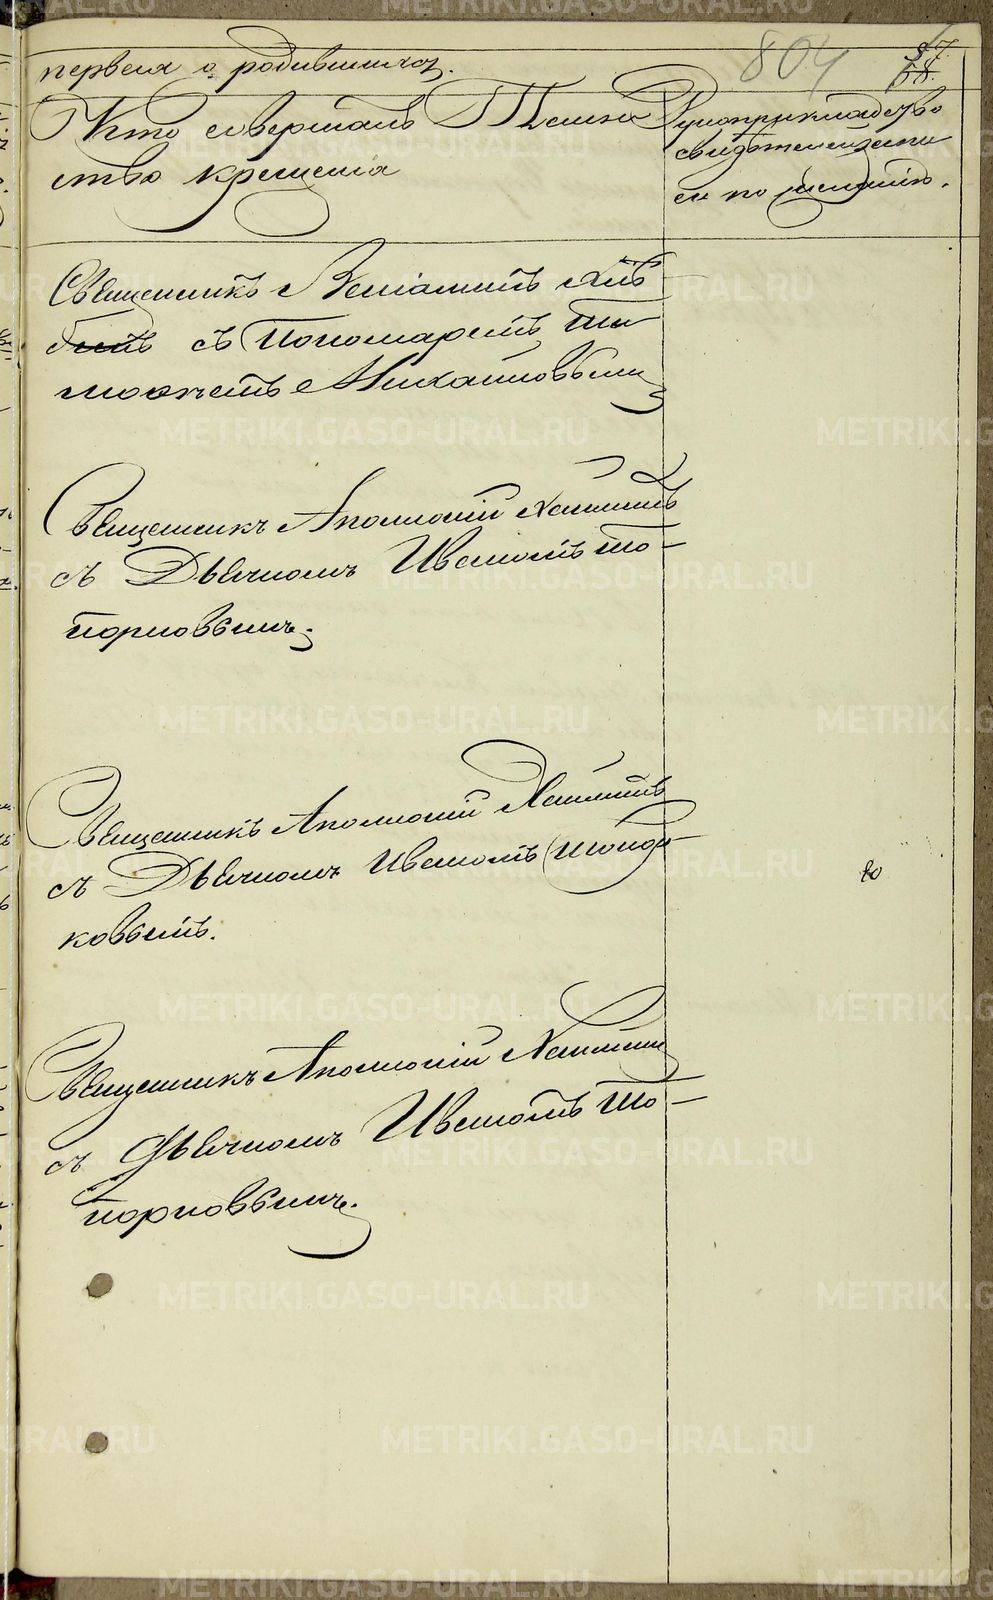 первая о родившихся.
804
57.
68.
Кто совершалъ Таин
ство крещенія
Рукоприкладство
свидѣтелей записи
по желанію.
Священникъ Веніаминъ Хлѣ
бинъ съ Пономаремъ Ти
моѳеемъ Михайловымъ
Священникъ Аполлоній
съ Дьячкомъ Иваномъ То-
порковымъ.
Священникъ Аполлоній
съ Дьячкомъ Иваномъ Топор
ковымъ.
Священникъ Аполлоній
съ Дьячкомъ Иваномъ То-
порковымъ.
METRIKI.GASO-URAL.RU